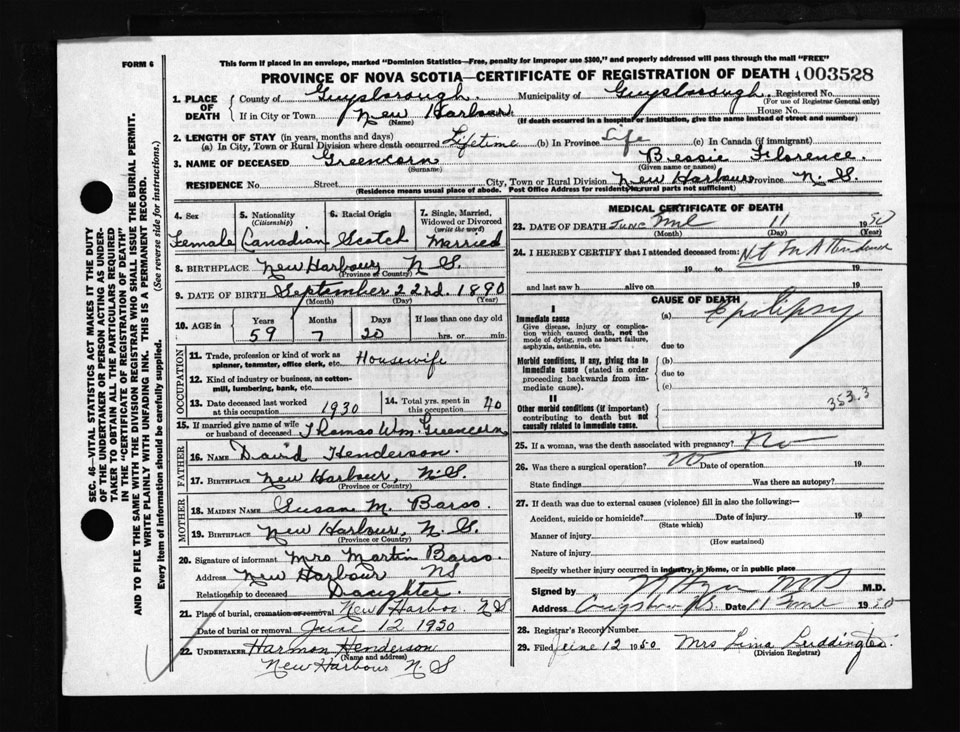 FORM 6
This form if placed in an envelope, marked "Dominion Statistics—Free, penalty for improper use $300," and properly addressed will pass through the mail "FREE"
PROVINCE OF NOVA SCOTIA—CERTIFICATE OF REGISTRATION OF DEATH 003528
1. PLACE OF DEATH County of Guysborough. Municipality of Guysborough. Registered No.
(For use of Registrar General only)
If in City or Town New Harbour House No.
(Name) (If death occurred in hospital or institution, give the name instead of street and number)
2. LENGTH OF STAY (in years, months and days)
(a) In City, Town or Rural Division where death occurred Lifetime (b) In Province Life (c) In Canada (if immigrant)
3. NAME OF DECEASED Greencorn Bessie Florence.
(Surname) (Given name or names)
RESIDENCE No. Street City, Town or Rural Division New Harbour Province N. S.
(Residence means usual place of abode. Post Office Address for residents in rural parts not sufficient)
4. Sex 5. Nationality (Citizenship) 6. Racial Origin 7. Single, Married, Widowed or Divorced (write the word)
Female Canadian Scotch Married
8. BIRTHPLACE New Harbour N S.
(Province or Country)
9. DATE OF BIRTH September 22nd. 1890
(Month) (Day) (Year)
10. AGE in Years Months Days If less than one day old
59 7 20 hrs. or min.
OCCUPATION
11. Trade, profession or kind of work as spinner, teamster, office clerk, etc. Housewife
12. Kind of industry or business, as cotton-mill, lumbering, bank, etc.
13. Date deceased last worked at this occupation 1930 14. Total yrs. spent in this occupation 40
15. If married give name of wife or husband of deceased Thomas Wm. Greencorn
FATHER
16. NAME David Henderson.
17. BIRTHPLACE New Harbour, N. S.
(Province or Country)
MOTHER
18. MAIDEN NAME Susan M. Barss.
19. BIRTHPLACE New Harbour, N. S.
(Province or Country)
20. Signature of informant Mrs Martin Barss.
Address New Harbour NS
Relationship to deceased Daughter.
21. Place of burial, cremation or removal New Harbor. N S
Date of burial or removal June 12 1950
22. UNDERTAKER Harmon Henderson
(Name and address)
New Harbour N S
MEDICAL CERTIFICATE OF DEATH
23. DATE OF DEATH June 11 1950
(Month) (Day) (Year)
24. I HEREBY CERTIFY that I attended deceased from: Not In Attendance
19 to 19
and last saw h alive on 19
CAUSE OF DEATH
I
Immediate cause (a) Epilipsy
Give disease, injury or complication which caused death, not the mode of dying, such as heart failure, asphyxia, asthenia, etc. due to
Morbid conditions, if any, giving rise to immediate cause (stated in order proceeding backwards from immediate cause). (b)
due to
(c)
II
Other morbid conditions (if important) contributing to death but not causally related to immediate cause. 353.3
25. If a woman, was the death associated with pregnancy? No
26. Was there a surgical operation? No Date of operation 19
State findings Was there an autopsy?
27. If death was due to external causes (violence) fill in also the following:—
Accident, suicide or homicide? Date of injury 19
(State which)
Manner of injury
(How sustained)
Nature of injury
Specify whether injury occurred in industry, in home, or in public place
Signed by M D M.D.
Address Date 11 June 1950
28. Registrar's Record Number
29. Filed June 12 1950 Mrs Lima Luddington.
(Division Registrar)
SEC. 46—VITAL STATISTICS ACT MAKES IT THE DUTY
OF THE UNDERTAKER OR PERSON ACTING AS UNDERTAKER TO OBTAIN ALL THE PARTICULARS REQUIRED
IN THE "CERTIFICATE OF REGISTRATION OF DEATH"
AND TO FILE THE SAME WITH THE DIVISION REGISTRAR WHO SHALL ISSUE THE BURIAL PERMIT.
WRITE PLAINLY WITH UNFADING INK. THIS IS A PERMANENT RECORD.
Every item of information should be carefully supplied. (See reverse side for instructions.)